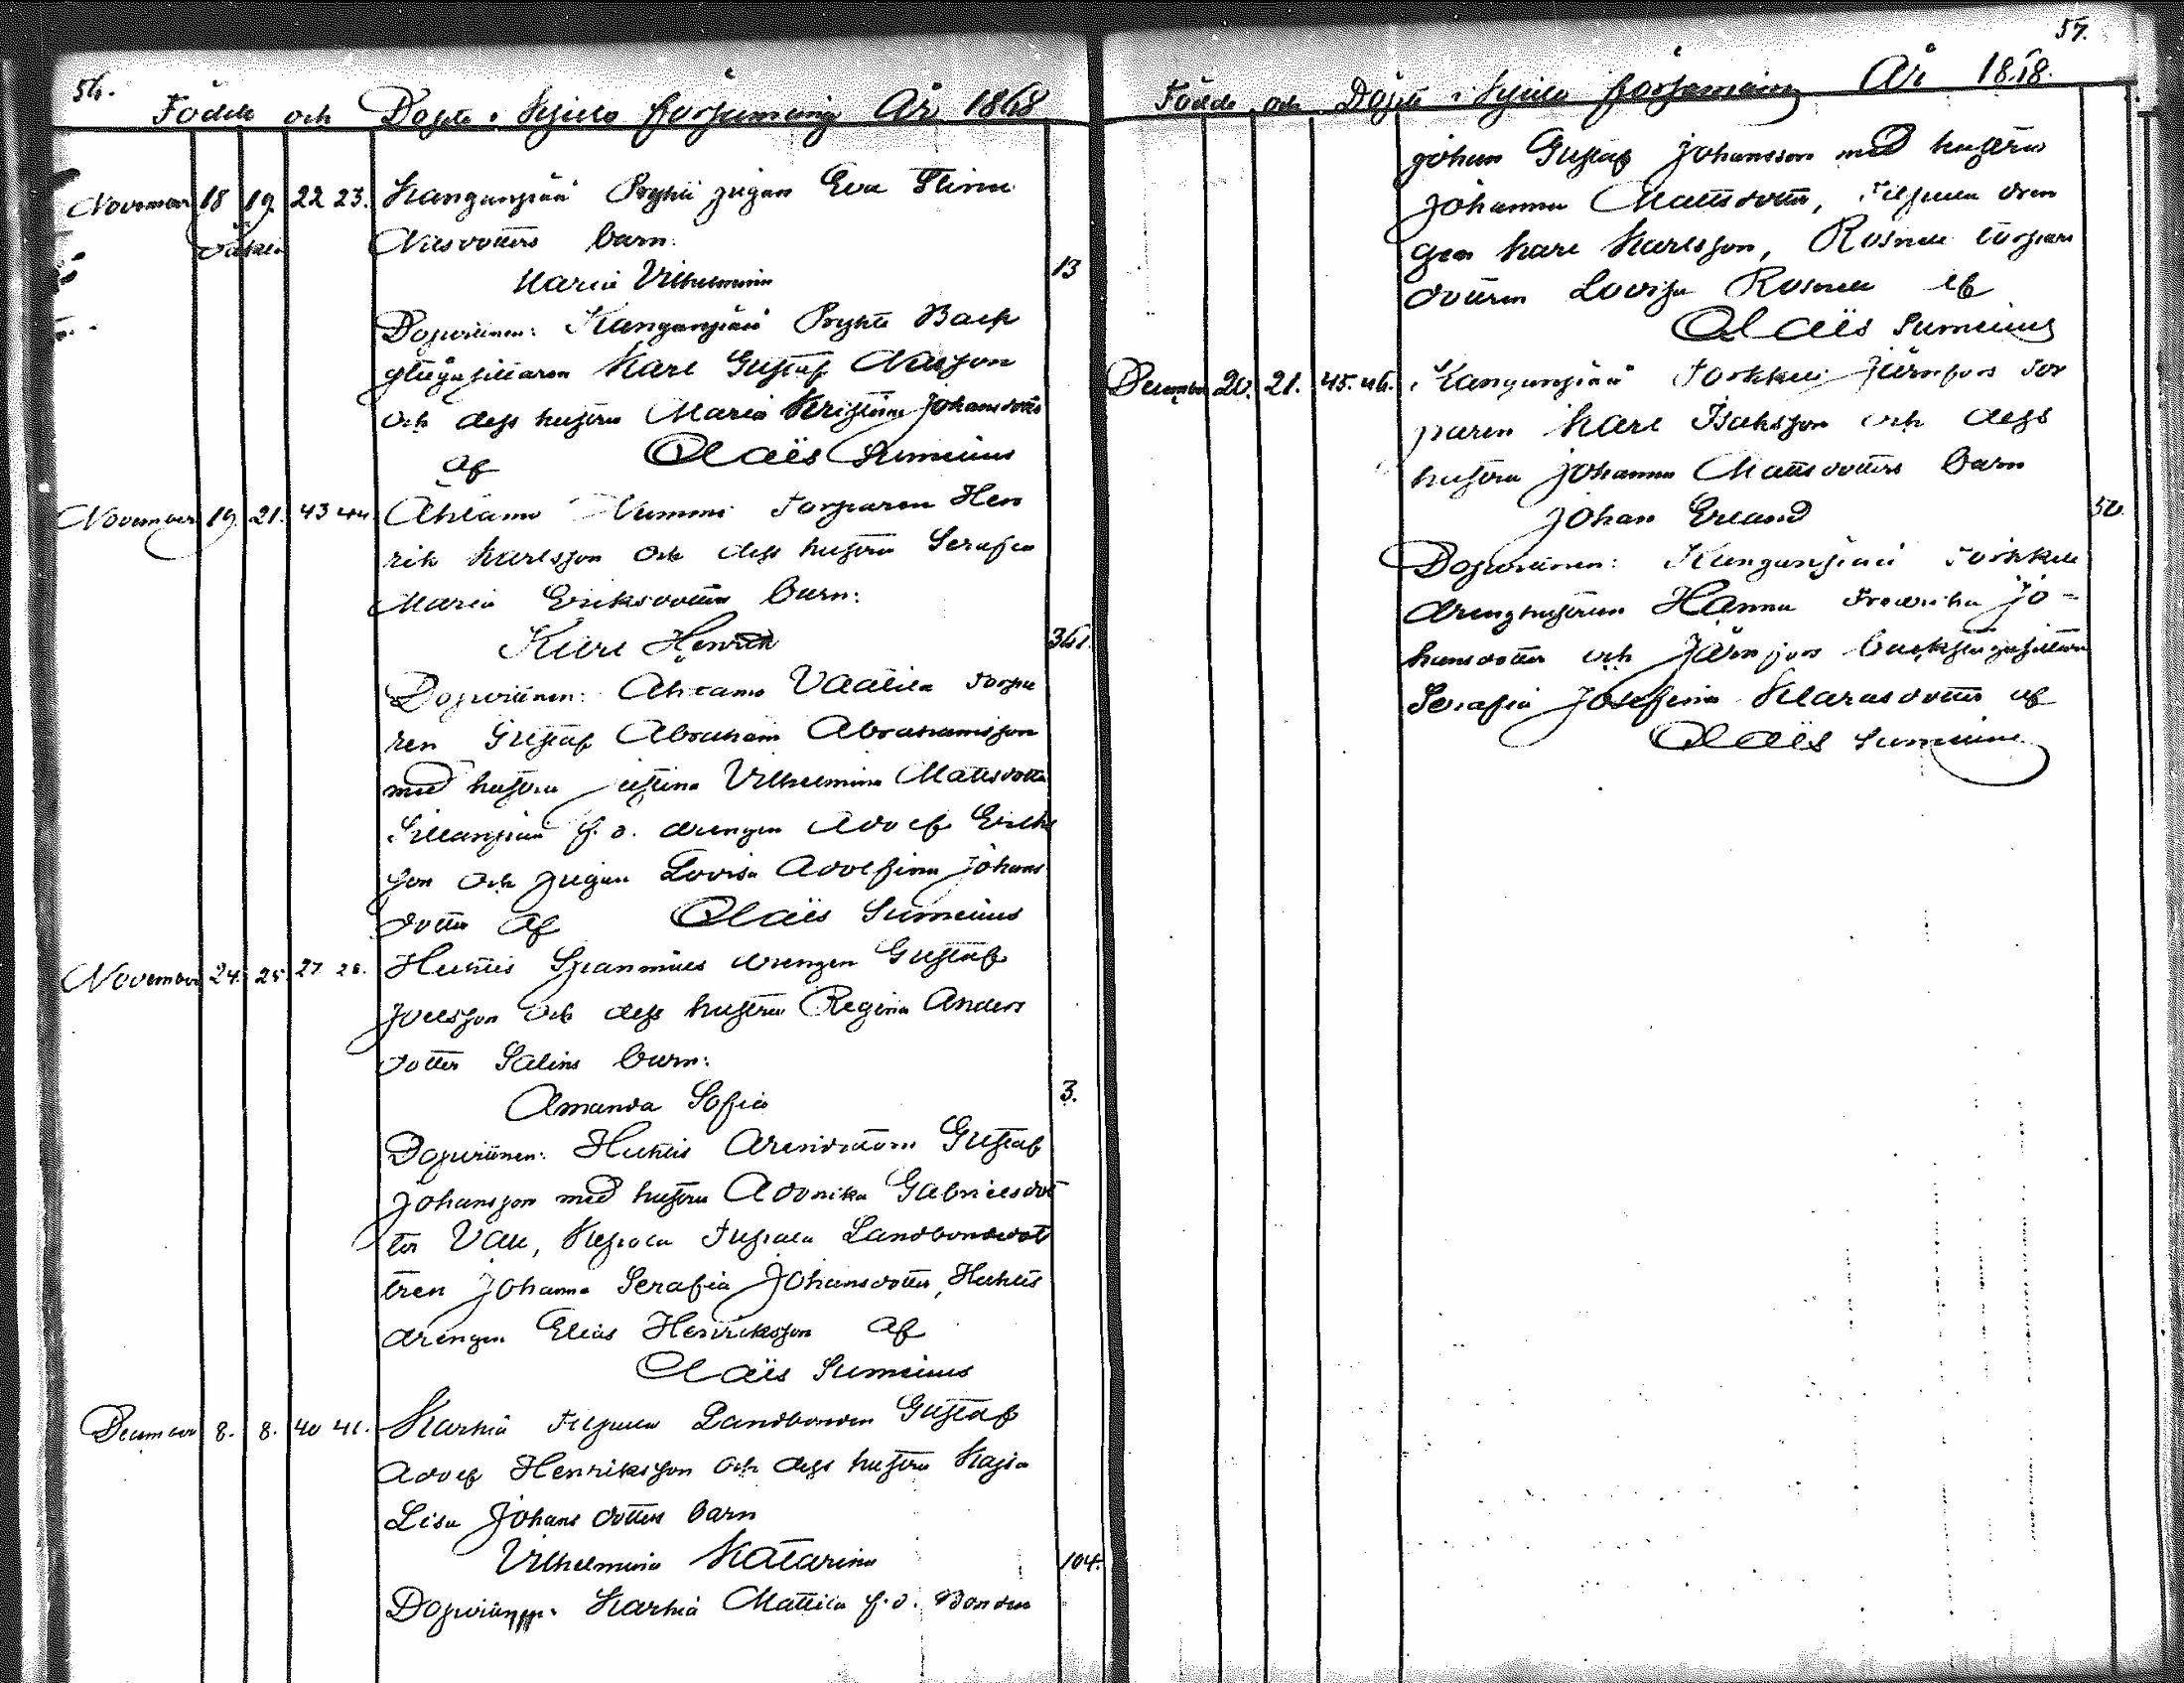 56.
Födde och Döpte i Kjulo församling År 1868
November 18 19. 22 23. Kanganpää Prykti pigan Eva Stina
oäkta Nilsdotters barn:
Maria Vilhelmina 13
Dopvittnen: Kanganpää Prykti Back
stugusittaren Karl Gustaf Nilsson
och dess hustru Maria Kristina Johansdotter
af Claës Sumelius
November 19. 21. 43 44. Ahlainen Nummi Torparen Hen
rik Karlsson och dess hustru Serafia
Maria Eriksdotter barn:
Karl Henrik 361.
Dopvittnen: Vaatila Torpa
ren Gustaf Abraham Abrahamsson
med hustru Justina Vilhelmina Mattsdotter
Sillanpää f.d. drengen Adolf Eriks
son och pigan Lovisa Adolfina Johans
dotter af Claës Sumelius
November 24. 25. 27. 28. Huhtis drengen Gustaf
Joelsson och dess hustru Regina Anders
dotter Salins barn:
Amanda Sofia 3.
Dopvittnen: Huhtis Gustaf
Johansson med hustru Gabrielsdot
ter Landbondedot
tren Johanna Serafia Johansdotter, Huhtis
drengen Elias Henriksson af
Claës Sumelius
December 8. 8. 40 41. Karhia Landbonden Gustaf
Adolf Henriksson och dess hustru Kajsa
Lisa Johansdotters barn
Vilhelmina Katarina 104.
Dopvittnen: Karhia Mattila f.d. Bonden
57.
Födde och Döpte i Kjulo församling År 1868.
Johan Gustaf Johansson med hustru
Johanna Mattsdotter, dren
gen Karl Karlsson, torpare
dottren Lovisa af
Claës Sumelius
December 20. 21. 45. 46. Kanganpää Torkkeli Järnfors Tor
paren Karl Isaksson och dess
hustru Johanna Mattsdotters barn
Johan Erland 50.
Dopvittnen: Kanganpää Torkkeli
drenghustrun Hanna Fredrika Jo=
hansdotter och Järnfors backstugusittaren
Serafia Josefina af
Claës Sumelius